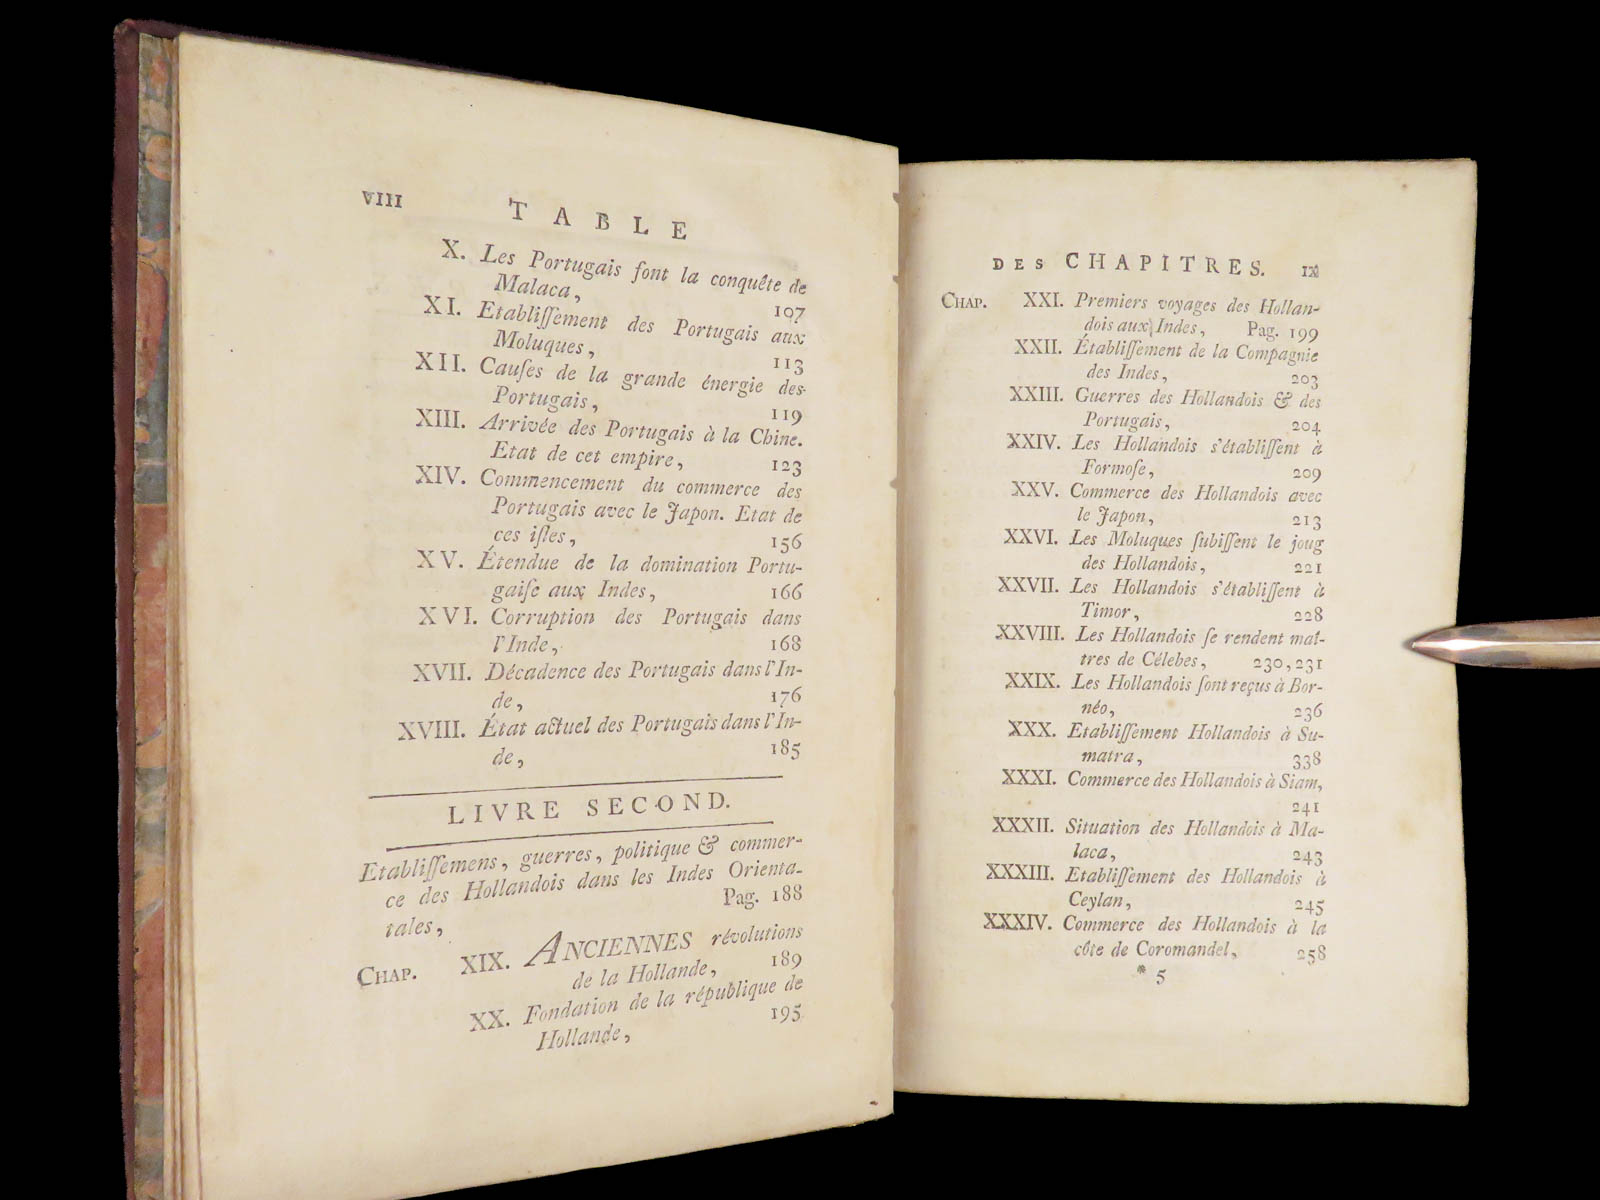 VIII TABLE
X. Les Portugais font la conquête de
Malaca, 107
XI. Etabliſſement des Portugais aux
Moluques, 113
XII. Cauſes de la grande énergie des
Portugais, 119
XIII. Arrivée des Portugais à la Chine.
Etat de cet empire, 123
XIV. Commencement du commerce des
Portugais avec le Japon. Etat de
ces iſles, 156
XV. Étendue de la domination Portu-
gaiſe aux Indes, 166
XVI. Corruption des Portugais dans
l'Inde, 168
XVII. Décadence des Portugais dans l'In-
de, 176
XVIII. État actuel des Portugais dans l'In-
de, 185
LIVRE SECOND.
Etabliſſemens, guerres, politique & commer-
ce des Hollandois dans les Indes Orienta-
tales, Pag. 188
CHAP. XIX. ANCIENNES révolutions
de la Hollande, 189
XX. Fondation de la république de
Hollande, 195
DES CHAPITRES. IX
CHAP. XXI. Premiers voyages des Hollan-
dois aux Indes, Pag. 199
XXII. Établiſſement de la Compagnie
des Indes, 203
XXIII. Guerres des Hollandois & des
Portugais, 204
XXIV. Les Hollandois s'établiſſent à
Formoſe, 209
XXV. Commerce des Hollandois avec
le Japon, 213
XXVI. Les Moluques ſubiſſent le joug
des Hollandois, 221
XXVII. Les Hollandois s'établiſſent à
Timor, 228
XXVIII. Les Hollandois ſe rendent maî-
tres de Célebes, 230, 231
XXIX. Les Hollandois ſont reçus à Bor-
néo, 236
XXX. Etabliſſement Hollandois à Su-
matra, 338
XXXI. Commerce des Hollandois à Siam,
241
XXXII. Situation des Hollandois à Ma-
laca, 243
XXXIII. Etabliſſement des Hollandois à
Ceylan, 245
XXXIV. Commerce des Hollandois à la
côte de Coromandel, 258
* 5